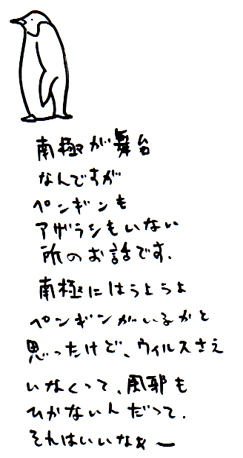 南極が舞台
なんですが
ペンギンも
アザラシもいない
所のお話です.
南極にはうようよ
ペンギンがいるかと
思ったけど、ウィルスさえ
いなくって、風邪も
ひかないんだって.
それはいいなぁー